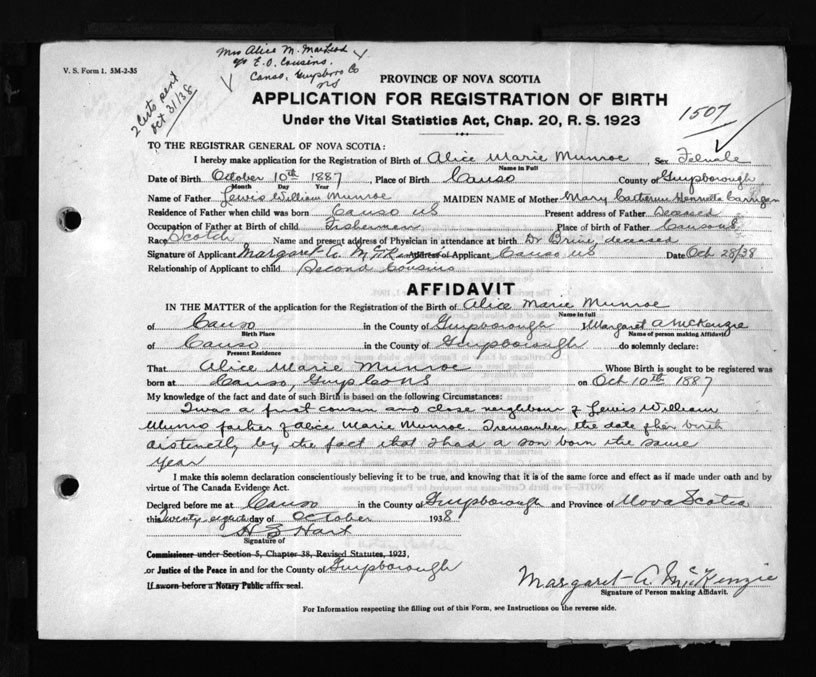 V. S. Form 1. 5M-2-35
Mrs Alice M. MacLeod
c/o E. O. Cousins.
Canso, Guysboro Co
NS
2 Certs sent
Oct 31/38
PROVINCE OF NOVA SCOTIA
APPLICATION FOR REGISTRATION OF BIRTH
Under the Vital Statistics Act, Chap. 20, R. S. 1923
1507
TO THE REGISTRAR GENERAL OF NOVA SCOTIA:
I hereby make application for the Registration of Birth of Alice Marie Munroe Sex Female
Name in Full
Date of Birth October 10th 1887, Place of Birth Canso County of Guysborough
Month Day Year
Name of Father Lewis William Munroe MAIDEN NAME of Mother Mary Catherine Henrietta Carrigan
Residence of Father when child was born Canso NS Present address of Father Deceased
Occupation of Father at Birth of child Fisherman Place of birth of Father Canso NS
Race Scotch Name and present address of Physician in attendance at birth Dr Brine, deceased
Signature of Applicant Margaret A. McKenzie Address of Applicant Canso NS Date Oct 28/38
Relationship of Applicant to child Second Cousins
AFFIDAVIT
IN THE MATTER of the application for the Registration of the Birth of Alice Marie Munroe
Name in full
of Canso in the County of Guysborough I, Margaret A McKenzie
Birth Place Name of person making Affidavit
of Canso in the County of Guysborough do solemnly declare:
Present Residence
That Alice Marie Munroe Whose Birth is sought to be registered was
born at Canso, Guys Co NS on Oct 10th 1887
My knowledge of the fact and date of such Birth is based on the following Circumstances:
I was a first cousin and close neighbour of Lewis William
Munro father of Alice Marie Munroe. I remember the date of her birth
distinctly by the fact that I had a son born the same
year
I make this solemn declaration conscientiously believing it to be true, and knowing that it is of the same force and effect as if made under oath and by
virtue of The Canada Evidence Act.
Declared before me at Canso in the County of Guysborough and Province of Nova Scotia
this Twenty eighth day of October 1938
H S Hart
Signature of
Commissioner under Section 5, Chapter 38, Revised Statutes, 1923,
or Justice of the Peace in and for the County of Guysborough
If sworn before a Notary Public affix seal.
Margaret A. McKenzie
Signature of Person making Affidavit.
For Information respecting the filling out of this Form, see Instructions on the reverse side.